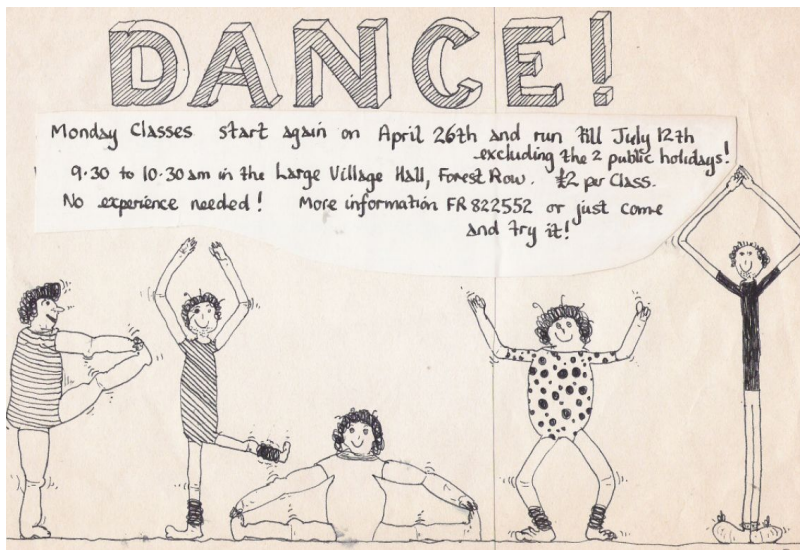 DANCE!
Monday Classes start again on April 26th and run till July 12th
excluding the 2 public holidays!
9.30 to 10.30am in the Large Village Hall, Forest Row. £2 per Class.
No experience needed! More information FR 822552 or just come
and try it!